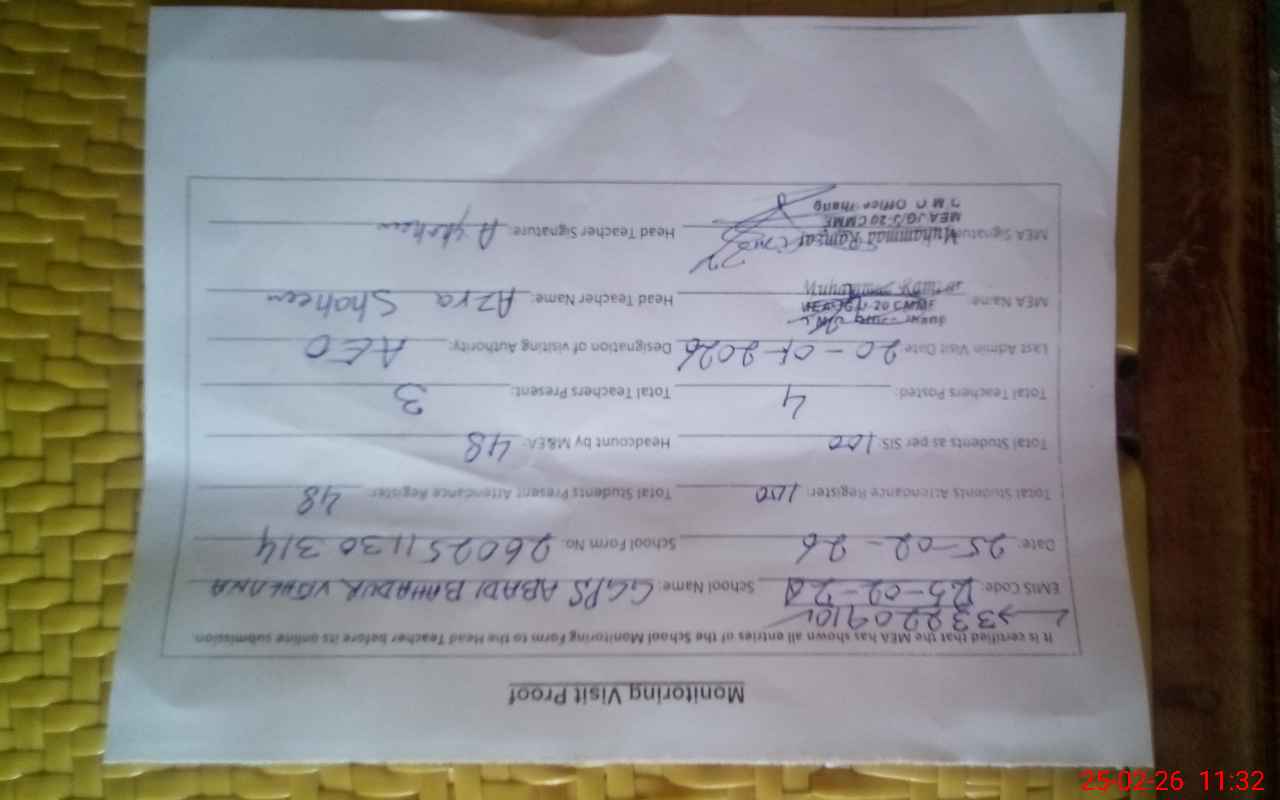 Monitoring Visit Proof
It is certified that the MEA has shown all entries of the School Monitoring Form to the Head Teacher before its online submission.
→33220910
EMIS Code: 25-02-26 School Name: GGPS ABADI BAHADUR
Date: 25-02-26 School Form No. 26025 1130 314
Total Students Attendance Register: 100 Total Students Present Attendance Register: 48
Total Students as per SIS: 100 Headcount by M&EA: 48
Total Teachers Posted: 4 Total Teachers Present: 3
Last Admin Visit Date: 20-01-2026 Designation of visiting Authority: AEO
MEA Name Muhammad Ramzan Head Teacher Name: Azra Shaheen
MEA JG/S-20 CMMF
MEA Signature Muhammad Ramzan Head Teacher Signature: A shaheen
MEA JG/S-20 CMMF
D M O Office Jhang
25-02-26 11:32